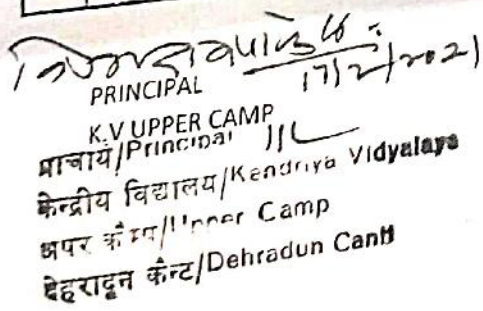 17/2/2021
PRINCIPAL
K.V UPPER CAMP
प्राचार्य/Principal
केन्द्रीय विद्यालय/Kendriya Vidyalaya
अपर कैम्प/Upper Camp
देहरादून कैन्ट/Dehradun Cantt